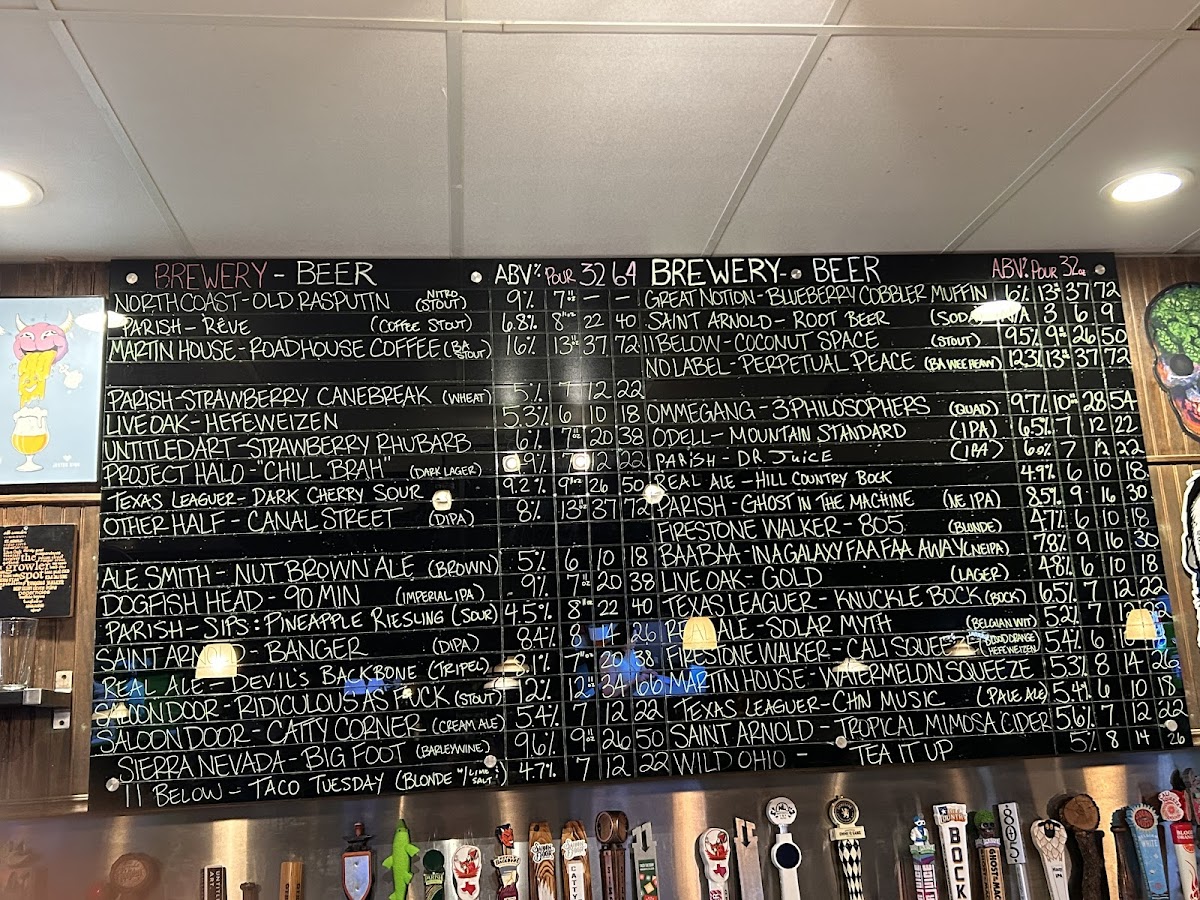 BREWERY - BEER ABV% POUR 32 64
NORTH COAST - OLD RASPUTIN (NITRO STOUT) 9% 7 11oz - -
PARISH - RÊVE (COFFEE STOUT) 6.8% 8 11oz 22 40
MARTIN HOUSE - ROADHOUSE COFFEE (BA STOUT) 16% 13 37 72
PARISH - STRAWBERRY CANEBREAK (WHEAT) 5% 7 12 22
LIVE OAK - HEFEWEIZEN 5.3% 6 10 18
UNTITLED ART - STRAWBERRY RHUBARB 6% 7 11oz 20 38
PROJECT HALO - "CHILL BRAH" (DARK LAGER)
TEXAS LEAGUER - DARK CHERRY SOUR 9.2% 9 26 50
OTHER HALF - CANAL STREET (DIPA) 8% 13 37 72
ALE SMITH - NUT BROWN ALE (BROWN) 5% 6 10 18
DOGFISH HEAD - 90 MIN (IMPERIAL IPA) 9% 7 11oz 20 38
PARISH - SIPS: PINEAPPLE RIESLING (SOUR) 4.5% 8 22 40
SAINT ARNOLD - BANGER (DIPA) 8.4% 8 14 26
REAL ALE - DEVIL'S BACKBONE (TRIPEL) 8.1% 7 20 38
SALOON DOOR - RIDICULOUS AS FUCK (STOUT) 12% 12 34 66
SALOON DOOR - CATTY CORNER (CREAM ALE) 5.4% 7 12 22
SIERRA NEVADA - BIG FOOT (BARLEYWINE) 9.6% 9 11oz 26 50
11 BELOW - TACO TUESDAY (BLONDE W/LIME SALT) 4.7% 7 12 22
BREWERY - BEER ABV% POUR 32oz
GREAT NOTION - BLUEBERRY COBBLER MUFFIN 6% 13 37 72
SAINT ARNOLD - ROOT BEER (SODA) N/A 3 6 9
11 BELOW - COCONUT SPACE (STOUT) 9.5% 9 26 50
NO LABEL - PERPETUAL PEACE (BA WEE HEAVY) 12.3% 13 37 72
OMMEGANG - 3 PHILOSOPHERS (QUAD) 9.7% 10 28 54
ODELL - MOUNTAIN STANDARD (IPA) 6.5% 7 12 22
PARISH - DR JUICE (IPA) 6.0% 7 12 22
REAL ALE - HILL COUNTRY BOCK 4.9% 6 10 18
PARISH - GHOST IN THE MACHINE (NE IPA) 8.5% 9 16 30
FIRESTONE WALKER - 805 (BLONDE) 4.7% 6 10 18
BAA BAA - IN A GALAXY FAA FAA AWAY (NEIPA) 7.8% 9 16 30
LIVE OAK - GOLD (LAGER) 4.8% 6 10 18
TEXAS LEAGUER - KNUCKLE BOCK (BOCK) 6.5% 7 12 22
REAL ALE - SOLAR MYTH (BELGIAN WIT) 5.2% 7 12 22
FIRESTONE WALKER - CALI SQUEEZE (BLOOD ORANGE HEFEWEIZEN) 5.4% 6 18
MARTIN HOUSE - WATERMELON SQUEEZE 5.3% 8 14 26
TEXAS LEAGUER - CHIN MUSIC (PALE ALE) 5.4% 6 10 18
SAINT ARNOLD - TROPICAL MIMOSA CIDER 5.6% 7 12 22
WILD OHIO - TEA IT UP 5% 8 14 26
the growler spot
BOCK
805
CATTY